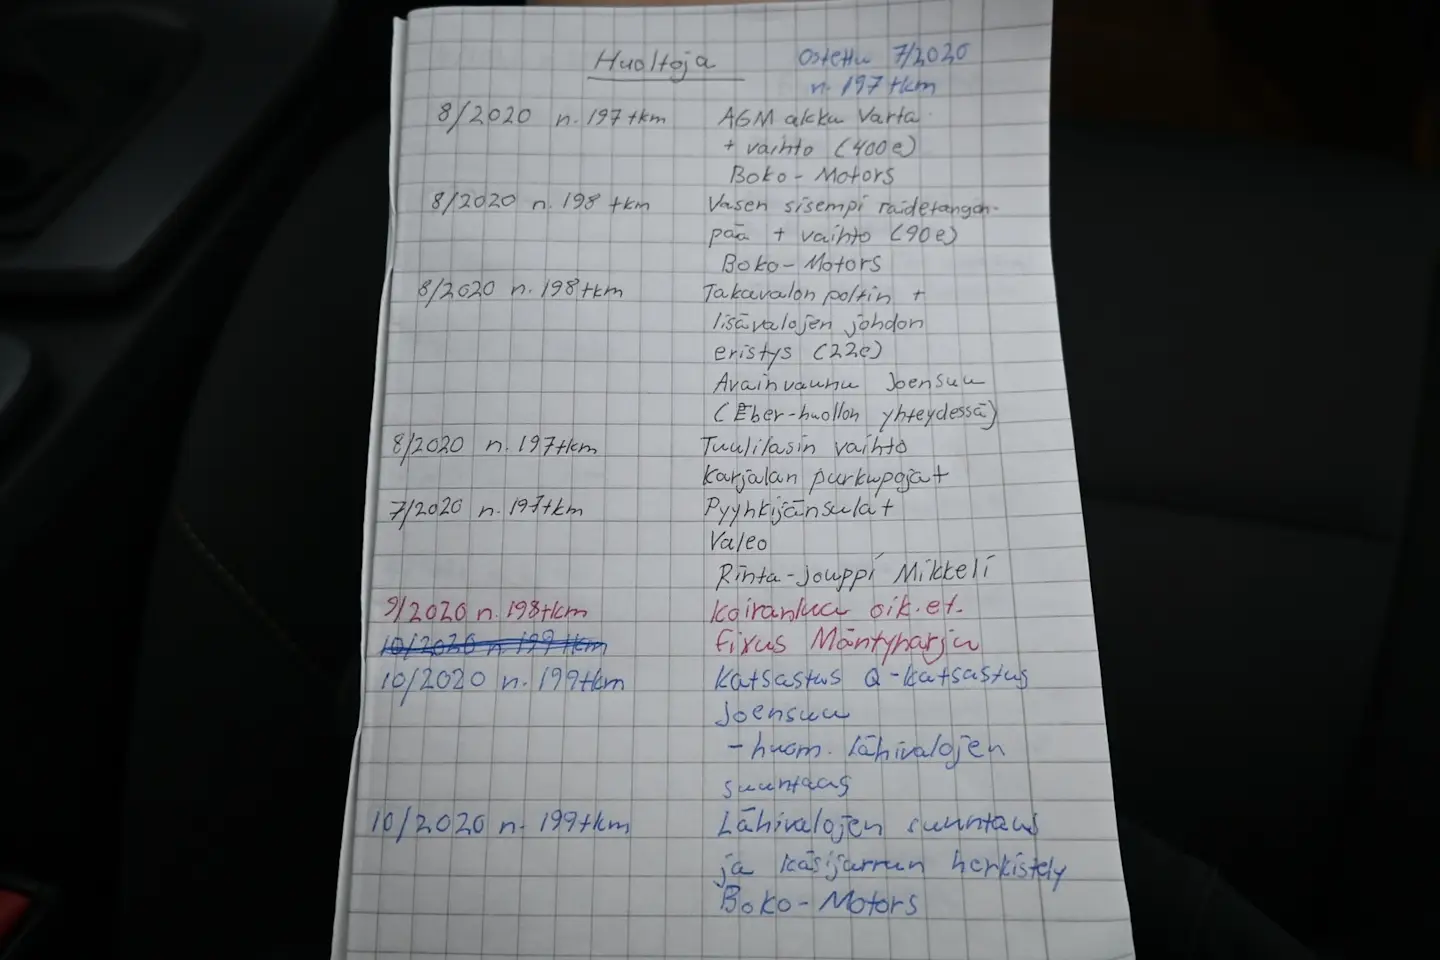 Huoltoja Ostettu 7/2020
n. 197 tkm
8/2020 n. 197 tkm AGM akku Varta
+ vaihto (400e)
Boko-Motors
8/2020 n. 198 tkm Vasen sisempi raidetangon-
pää + vaihto (90e)
Boko-Motors
8/2020 n. 198 tkm Takavalon poltin +
lisävalojen johdon
eristys (22e)
Avainvaunu Joensuu
(Eber-huollon yhteydessä)
8/2020 n. 197 tkm Tuulilasin vaihto
Karjalan purkupojat
7/2020 n. 197 tkm Pyyhkijänsulat
Valeo
Rinta-Jouppi Mikkeli
9/2020 n. 198 tkm Koiranluu oik. et.
10/2020 n. 199 tkm Fixus Mäntyharju
10/2020 n. 199 tkm Katsastus Q-katsastus
Joensuu
- huom. Lähivalojen
suuntaus
10/2020 n. 199 tkm Lähivalojen suuntaus
ja käsijarrun herkistely
Boko-Motors